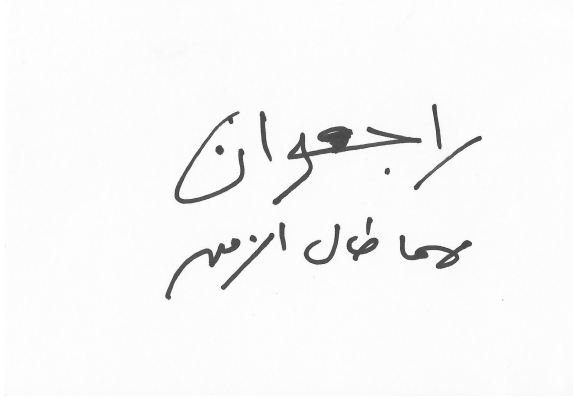 راجعوان
مهما طال الزمن